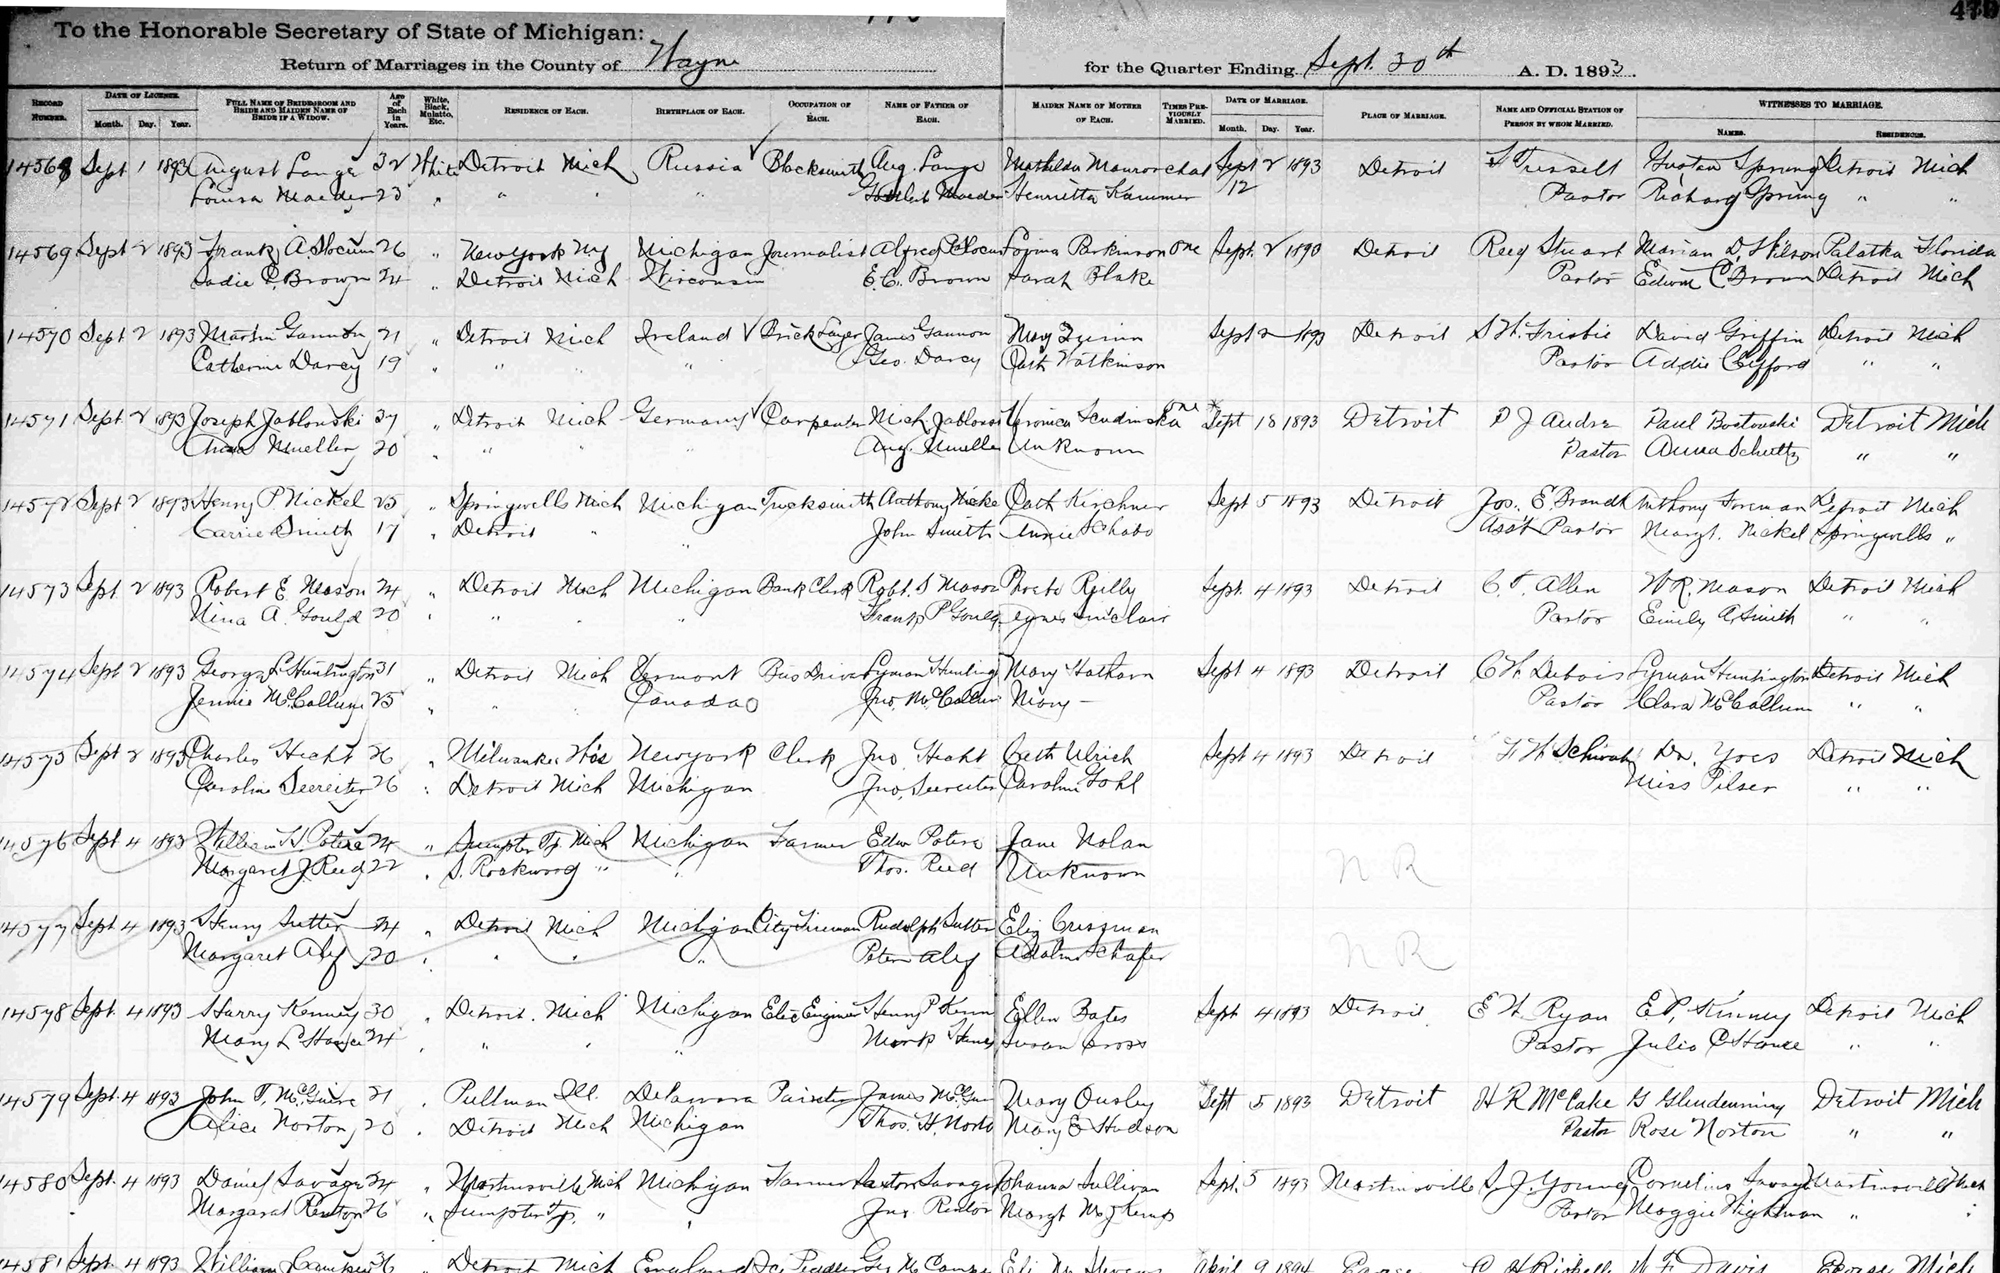 479
To the Honorable Secretary of State of Michigan:
Return of Marriages in the County of Wayne for the Quarter Ending Sept. 30th A. D. 1893.
RECORD NUMBER. DATE OF LICENSE. Month. Day. Year. FULL NAME OF BRIDEGROOM AND BRIDE AND MAIDEN NAME OF BRIDE IF A WIDOW. Age of Each in Years. White, Black, Mulatto, Etc. RESIDENCE OF EACH. BIRTHPLACE OF EACH. OCCUPATION OF EACH. NAME OF FATHER OF EACH. MAIDEN NAME OF MOTHER OF EACH. TIMES PREVIOUSLY MARRIED. DATE OF MARRIAGE. Month. Day. Year. PLACE OF MARRIAGE. NAME AND OFFICIAL STATION OF PERSON BY WHOM MARRIED. WITNESSES TO MARRIAGE. NAMES. RESIDENCES.
14568 Sept 1 1893 August Lange 32 White Detroit Mich Russia Blacksmith Aug. Lange Mathilda Sept 2 1893 Detroit Gustav Sprung Detroit Mich
Louisa Maeder 23 " " " Maeder Henrietta Kammer 12 Pastor Richard Sprung " "
14569 Sept 2 1893 Frank A Slocum 26 " New York NY Michigan Journalist Alfred Slocum Parkinson one Sept. 2 1890 Detroit Reed Stuart Marian D. Wilson Palatka Florida
Sadie C. Brown 24 " Detroit Mich Wisconsin E. C. Brown Sarah Blake Pastor Edwin C Brown Detroit Mich
14570 Sept 2 1893 Martin Gannon 21 " Detroit Mich Ireland Brick Layer James Gannon Mary Quinn Sept 2 1893 Detroit S W. Frisbie David Griffin Detroit Mich
Catherine Darcy 19 " " " Geo. Darcy Cath Watkinson Pastor Addie Clifford " "
14571 Sept 2 1893 Joseph Jablonski 37 " Detroit Mich Germany Carpenter Mich Jablonski Veronica one Sept 18 1893 Detroit P J Andre Paul Detroit Mich
Mueller 20 " " " Aug. Mueller Unknown Pastor Anna Schultz " "
14572 Sept 2 1893 Henry P Nickel 25 " Springwells Mich Michigan Anthony Nickel Cath Kirchner Sept 5 1893 Detroit Jos. E. Brandt Anthony Foreman Detroit Mich
Carrie Smith 17 " Detroit " " John Smith Annie Schabo Asst Pastor Margt. Nickel Springwells "
14573 Sept. 2 1893 Robert E Mason 24 " Detroit Mich Michigan Bank Clerk Robt. S Mason Phoebe Reilly Sept. 4 1893 Detroit C. T. Allen W R. Mason Detroit Mich
Nina A. Gould 20 " " " Frank P Gould Agnes Sinclair Pastor Emily A Smith " "
14574 Sept 2 1893 George L Huntington 31 " Detroit Mich Vermont Bus Driver Lyman Hunting Mary Hathorn Sept 4 1893 Detroit C W Dubois Lyman Huntington Detroit Mich
Jennie McCallum 25 " " " Canada Jno. McCallum Mary — Pastor Clara McCallum " "
14575 Sept 2 1893 Charles Hecht 26 " Milwaukee Wis New York Clerk Jno. Hecht Cath Ulrich Sept 4 1893 Detroit Dr. Yoes Detroit Mich
Caroline Seereiter 26 " Detroit Mich Michigan Jno. Seereiter Caroline Gohl Miss Pilser " "
14576 Sept 4 1893 William H. Peters 24 " Sumpter Tp. Mich Michigan Farmer Edw Peters Jane Nolan
Margaret J. Reed 22 " S. Rockwood " " Thos. Reed Unknown N R
14577 Sept 4 1893 Henry Sutter 24 " Detroit Mich Michigan City Fireman Rudolph Sutter Eliz Crissman
Margaret Alef 20 " " " Peter Alef Schafer N R
14578 Sept. 4 1893 Harry Kenney 30 " Detroit. Mich Michigan Elec Engineer Henry P Kenn Ellen Bates Sept 4 1893 Detroit E W Ryan E P. Kinney Detroit Mich
Mary L 24 " " " Mark Susan Cross Pastor Julia C " "
14579 Sept. 4 1893 John T. McGuire 21 " Pullman Ill. Delaware Painter James McGui Mary Ousley Sept 5 1893 Detroit H R McCabe G Glendenning Detroit Mich
Alice Norton 20 " Detroit Mich Michigan Thos. H. Norto Mary E Hudson Pastor Rose Norton " "
14580 Sept. 4 1893 Daniel Savage 24 " Martinsville Mich Michigan Farmer Savage Johanna Sullivan Sept. 5 1893 Martinsville S. J. Young Cornelius Savage Martinsville Mich
Margaret Renton 26 " Sumpter Tp. " " Jno. Renton Margt Pastor Maggie Wightman " "
14581 Sept. 4 1893 William 36 " Detroit Mich England Eliz April 9 1894 W F Davis Mich